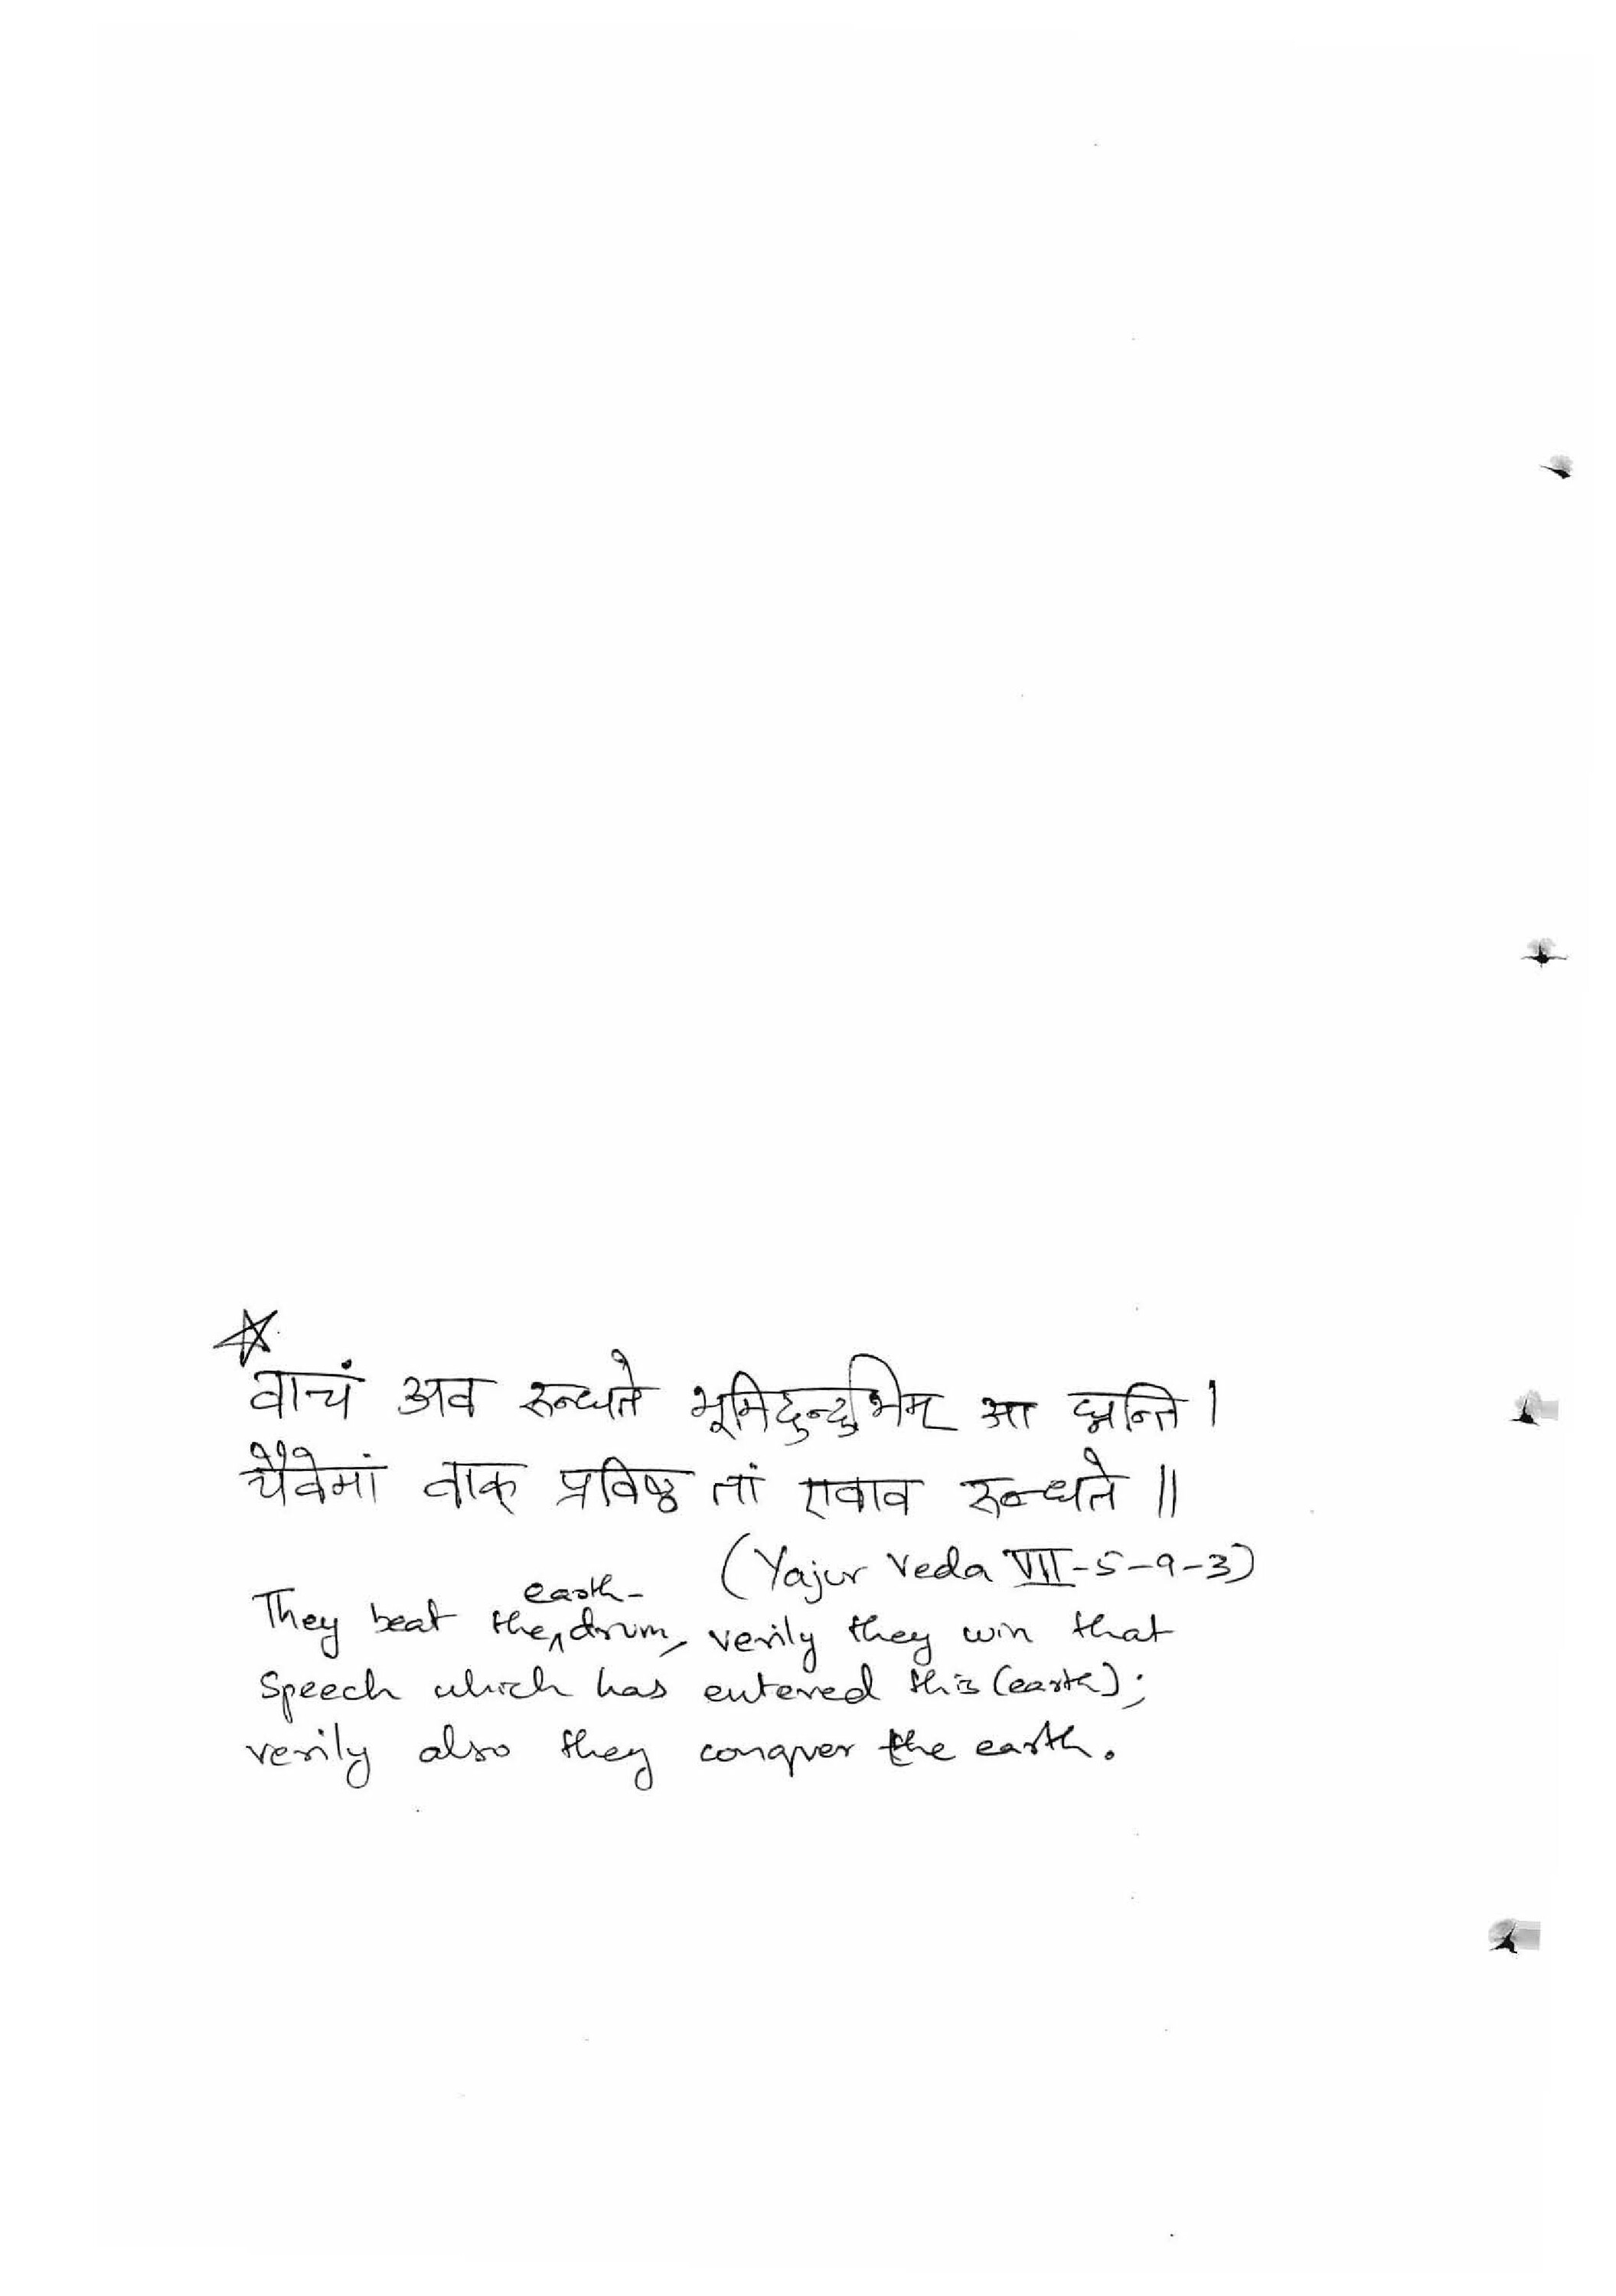 वाचं अव रुन्धते भूमिदुन्दुभिम् आ घ्नन्ति ।
यैवेमां वाक् प्रविष्ठ तां एवाव रुन्धते ॥
(Yajur Veda VII-5-9-3)
They beat the earth-drum, verily they win that
Speech which has entered this (earth);
verily also they conquer the earth.